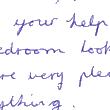 your help
bedroom look
are very plea
ything.